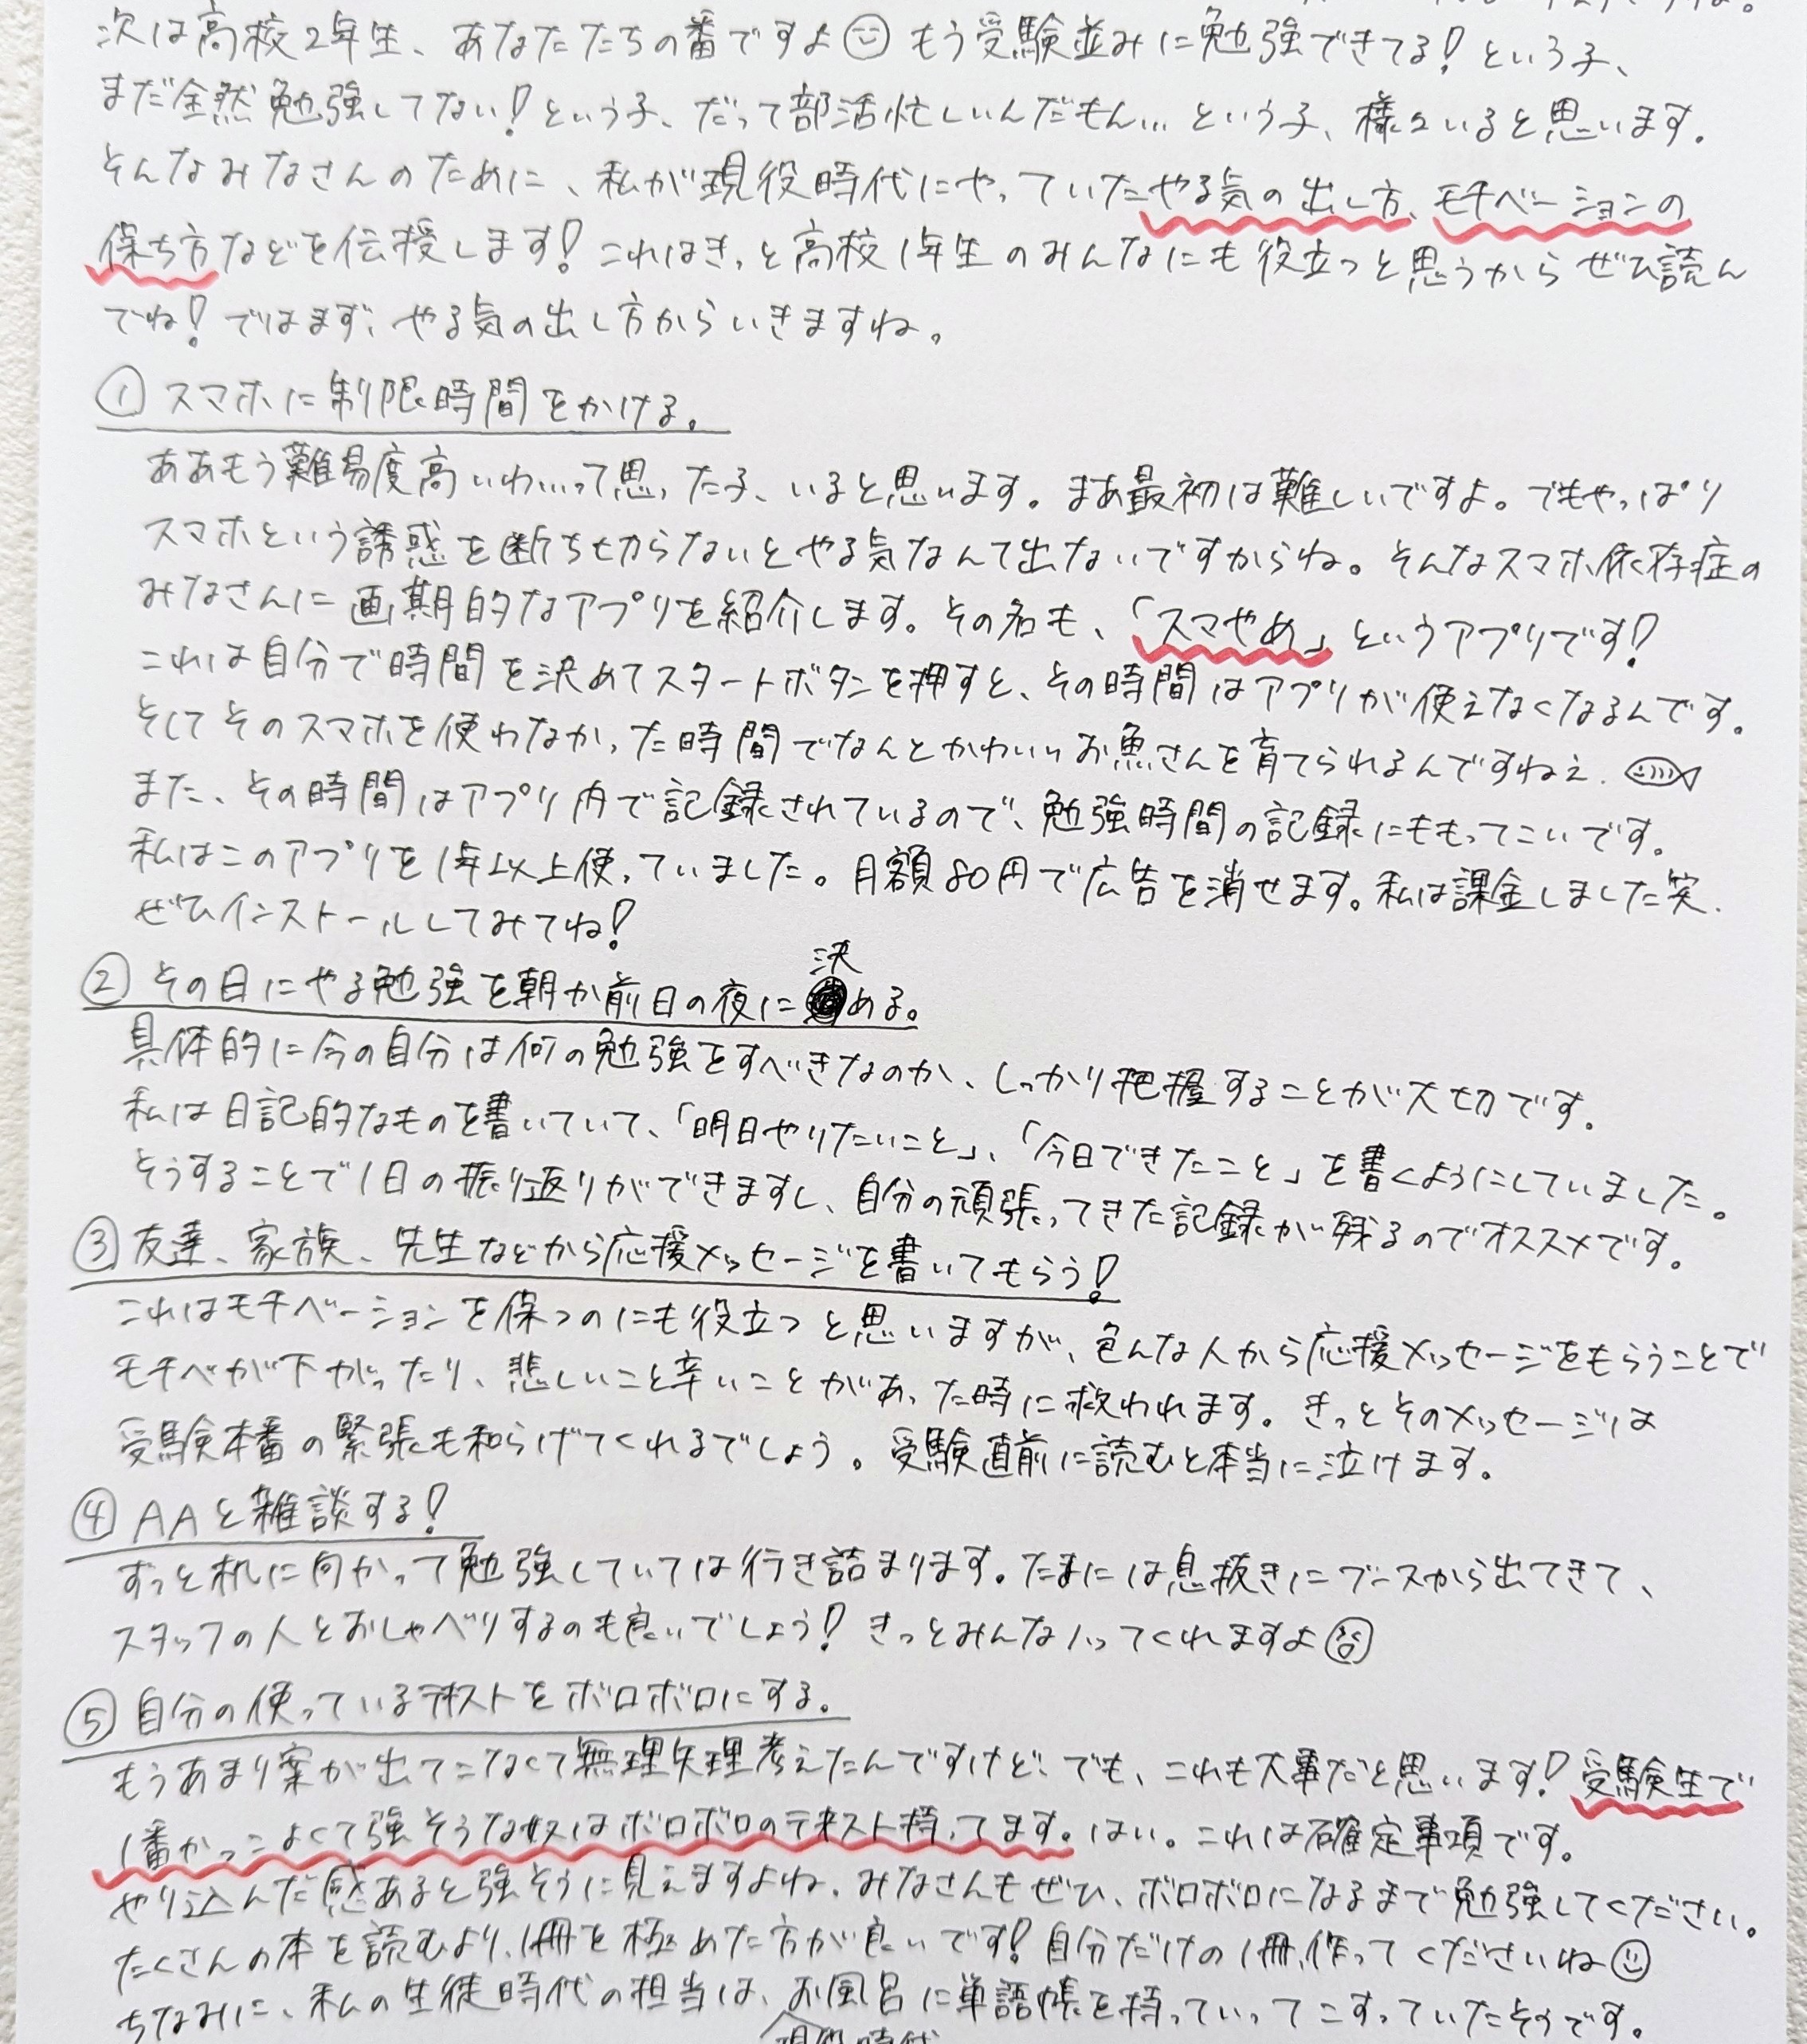 次は高校2年生、あなたたちの番ですよ もう受験並みに勉強できてる!という子、
まだ全然勉強してない!という子、だって部活忙しいんだもん…という子、様々いると思います。
そんなみなさんのために、私が現役時代にやっていたやる気の出し方、モチベーションの
保ち方などを伝授します!これはきっと高校1年生のみんなにも役立つと思うからぜひ読ん
でね!ではまず、やる気の出し方からいきますね。
① スマホに制限時間をかける。
ああもう難易度高いわ…って思った子、いると思います。まあ最初は難しいですよ。でもやっぱり
スマホという誘惑を断ち切らないとやる気なんて出ないですからね。そんなスマホ依存症の
みなさんに画期的なアプリを紹介します。その名も、「スマやめ」というアプリです!
これは自分で時間を決めてスタートボタンを押すと、その時間はアプリが使えなくなるんです。
そしてそのスマホを使わなかった時間でなんとかわいいお魚さんを育てられるんですねえ.
また、その時間はアプリ内で記録されているので、勉強時間の記録にももってこいです。
私はこのアプリを1年以上使っていました。月額80円で広告を消せます。私は課金しました笑.
ぜひインストールしてみてね!
② その日にやる勉強を朝か前日の夜に決める。
具体的に今の自分は何の勉強をすべきなのか、しっかり把握することが大切です。
私は日記的なものを書いていて、「明日やりたいこと」、「今日できたこと」を書くようにしていました。
そうすることで1日の振り返りができますし、自分の頑張ってきた記録が残るのでオススメです。
③ 友達、家族、先生などから応援メッセージを書いてもらう!
これはモチベーションを保つのにも役立つと思いますが、色んな人から応援メッセージをもらうことで
モチベが下がったり、悲しいこと辛いことがあった時に救われます。きっとそのメッセージは
受験本番の緊張も和らげてくれるでしょう。受験直前に読むと本当に泣けます。
④ AAと雑談する!
ずっと机に向かって勉強していては行き詰まります。たまには息抜きにブースから出てきて、
スタッフの人とおしゃべりするのも良いでしょう!きっとみんなのってくれますよ
⑤ 自分の使っているテキストをボロボロにする。
もうあまり案が出てこなくて無理矢理考えたんですけど、でも、これも大事だと思います!受験生で
1番かっこよくて強そうな奴はボロボロのテキスト持ってます。はい。これは確定事項です。
やり込んだ感あると強そうに見えますよね.みなさんもぜひ、ボロボロになるまで勉強してください。
たくさんの本を読むより、1冊を極めた方が良いです!自分だけの1冊、作ってくださいね
ちなみに、私の生徒時代の担当は、お風呂に単語帳を持っていってこすっていたそうです。